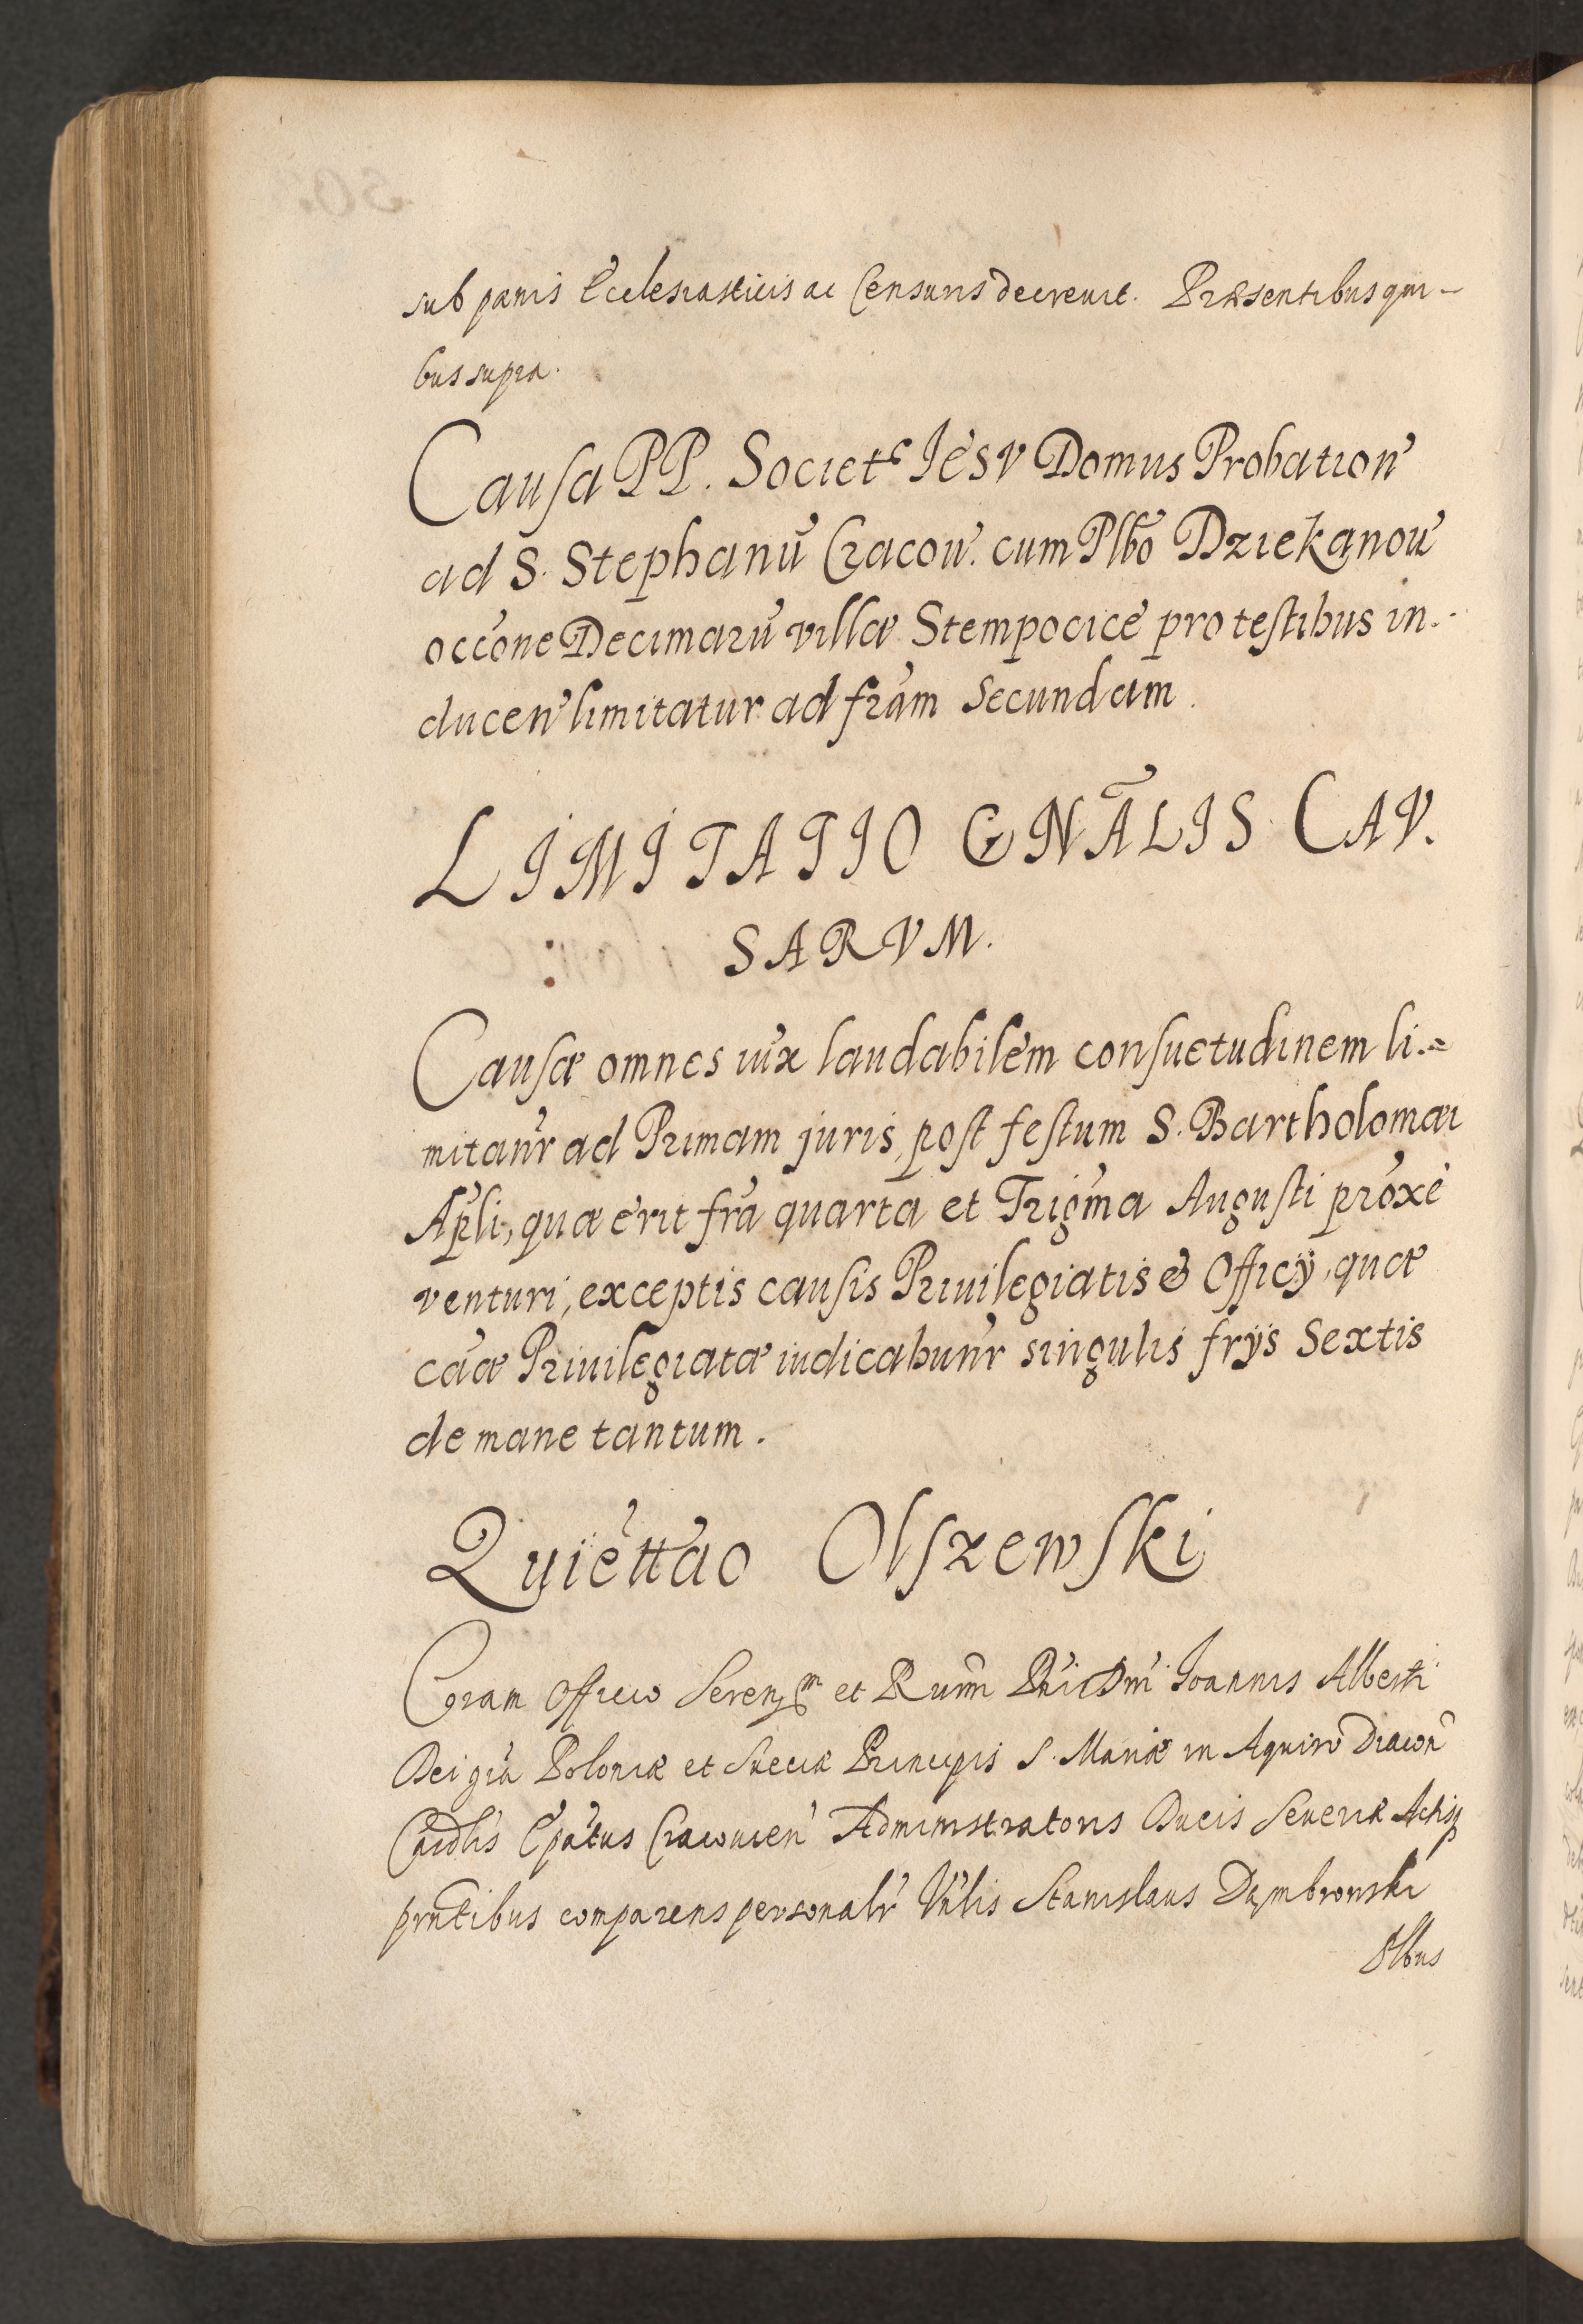 sub pænis Ecclesiasticis ac Censuris decreuit. Præsentibus qui-
bus supra.
Causa PP. Societ. IesV Domus Probation
ad S. Stephanū Cracou. cum Plbō Dziekanou
occōne Decimarū villæ Stempocice pro testibus in-
ducen limitatur ad frām Secundam.
LIMITATIO GNĀLIS CAV.
SARVM.
Causæ omnes iux laudabilem consuetudinem li-
mitanr ad Primam juris, post festum S. Bartholomæi
Apli, quæ erit fra quarta et Trigma Augusti proxe
venturi, exceptis causis Priuilegiatis & Officÿ, quæ
cāæ Priuilegiatæ iudicabunr singulis frÿs Sextis
de mane tantum.
Quiettao Olszewski
Coram Officio Serenssm et Rumī Pni Dni Ioannis Alberti
Dei gra Poloniæ et Sueciæ Principis S. Mariæ in Aquiro Diacon
Cardlis Epatus Cracouien Administratoris Ducis Seueriæ Actisq
prntibus comparens personalr Vnlis Stanislaus Dąmbrowski
Plbus